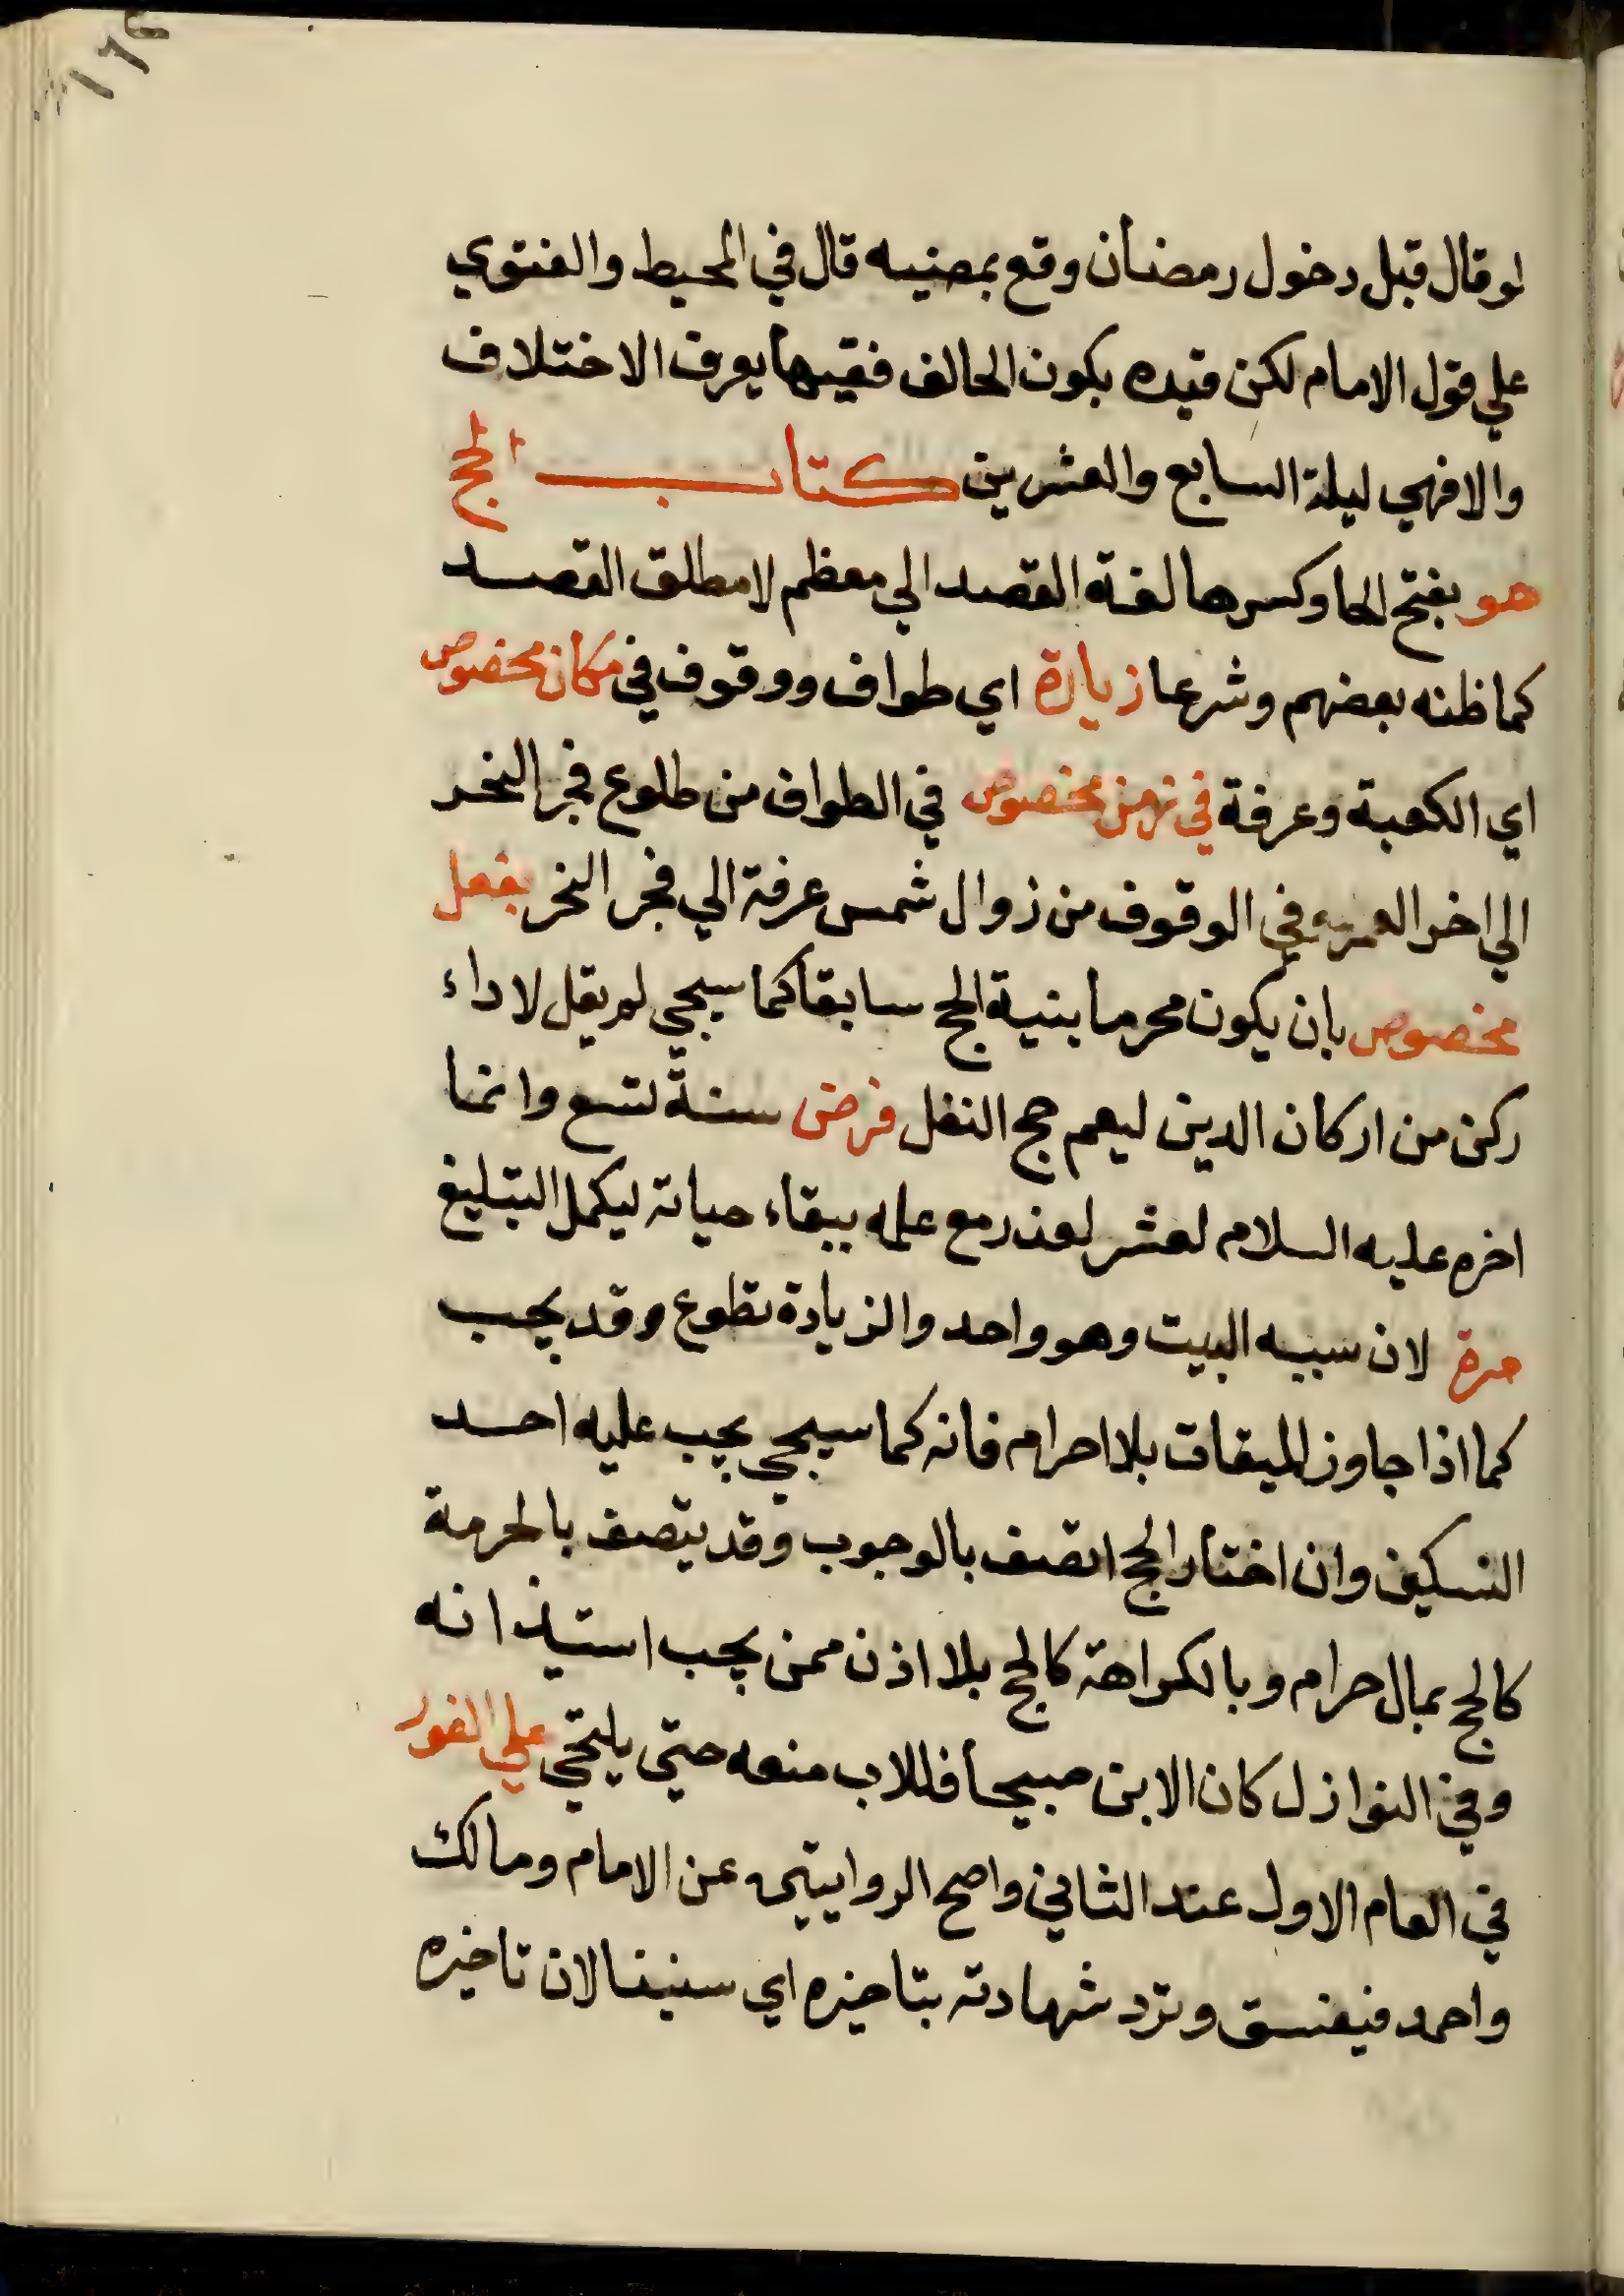 لو قال قبل دخول رمضان وقع بمضيه قال في المحيط والفتوي
علي قول الامام لكن قيده بكون الحالف فقيها يعرف الاختلاف
والا فهي ليلة السابع والعشرين كتاب الحج
هو بفتح الحا وكسرها لغة القصد الي معظم لا مطلق القصد
كما ظنه بعضهم وشرعا زيارة اي طواف ووقوف في مكان مخصوص
اي الكعبة وعرفة في زمن مخصوص في الطواف من طلوع فجر النحر
الي اخر العمر وفي الوقوف من زوال شمس عرفة الي فجر النحر بفعل
مخصوص بان يكون محرما بنية الحج سابقا كما سيجي لم يقل لاداء
ركن من اركان الدين ليعم حج النفل فرض سنة تسع وانما
اخره عليه السلام لعشر لعذر مع علمه ببقاء حياته ليكمل التبليغ
مرة لان سببه البيت وهو واحد والزيادة تطوع وقد يجب
كما اذا جاوز الميقات بلا احرام فانه كما سيجي يجب عليه احد
النسكين وان اختار الحج اتصف بالوجوب وقد يتصف بالحرمة
كالحج بمال حرام وبالكراهة كالحج بلا اذن ممن يجب استيذانه
وفي النوازل كان الابن صبيحا فللاب منعه حتي يلتحي علي الفور
في العام الاول عند الثاني واصح الروايتين عن الامام ومالك
واحمد فيفسق وترد شهادته بتاخيره اي سنينا لان تاخيره